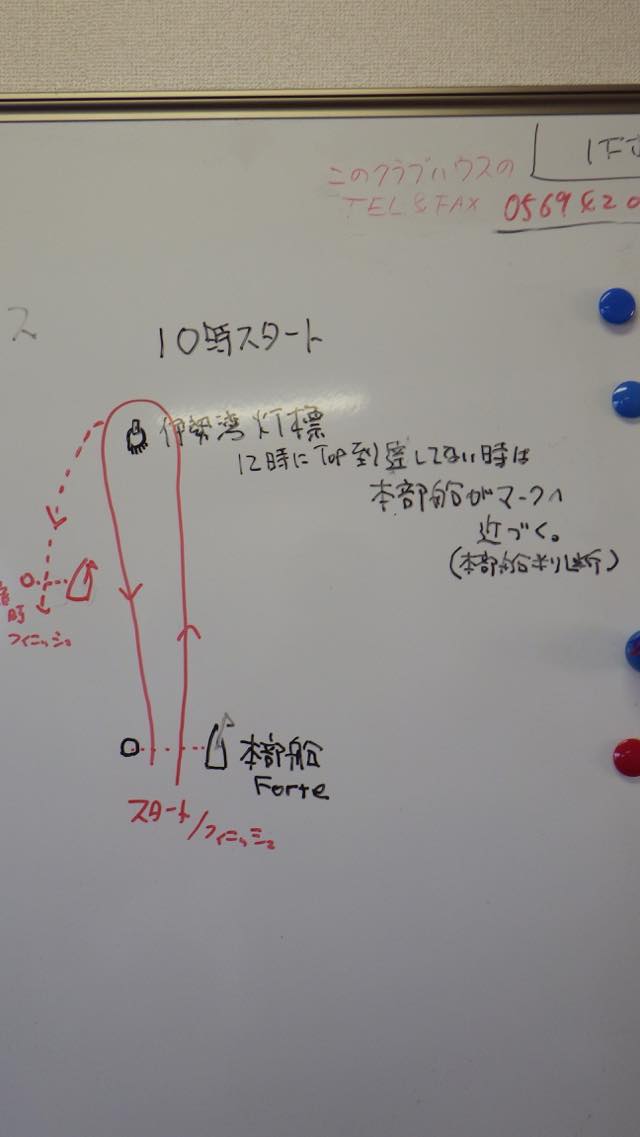 このクラブハウスの
TEL&FAX 0569 82 0
ス
10時スタート
伊勢湾灯標
12時にTop到達してない時は
本部船がマークへ
近づく。
(本部船判断)
時
フィニッシュ
本部船
Forte
スタート/フィニッシュ